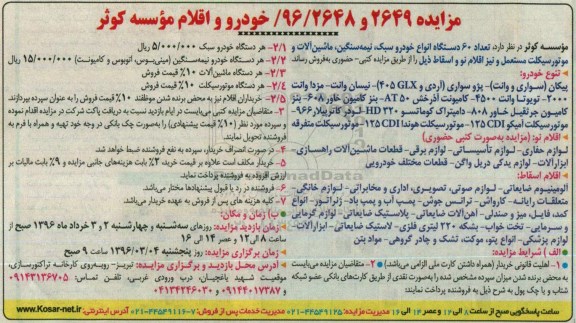 مزایده ۲۶۴۹ و ۹۶/۲۶۴۸/ خودرو و اقلام مؤسسه کوثر
مؤسسه کوثر در نظر دارد، تعداد ۶۰ دستگاه انواع خودرو سبک، نیمه‌سنگین، ماشین‌آلات و
موتورسیکلت مستعمل و نیز اقلام نو و اسقاط ذیل را از طریق مزایده کتبی- حضوری به‌فروش رساند
تنوع خودرو:
پیکان (سواری و وانت)- پژو سواری (آردی و GLX ۴۰۵)- نیسان وانت- مزدا وانت
۲۰۰۰- تویوتا وانت ۴۵۰۰- کامیونت آذرخش AT ۵۰- بنز کامیون خاور ۶۰۸- بنز
کامیون جرثقیل خاور ۸۰۸- دامپتراک کوماتسو HD ۳۲۰- لودر کاترپیلار ۹۶۶-
موتورسیکلت امیکو CDI ۱۲۵- موتورسیکلت هوندا CDI ۱۲۵- موتورسیکلت متفرقه
اقلام نو: (مزایده به‌صورت کتبی حضوری)
لوازم حفاری- لوازم تأسیساتی- لوازم برقی- قطعات ماشین‌آلات راهسازی-
ابزارآلات- لوازم یدکی دریل واگن- قطعات مختلف خودرویی
اقلام اسقاط:
آلومینیوم ضایعاتی- لوازم صوتی، تصویری، اداری و مخابراتی- لوازم خانگی-
متعلقات رایانه- کارواش- ترانس جوش- پمپ آب و پمپ باد- ژنراتور- انواع
کمد، فایل، میز و صندلی- آهن‌آلات ضایعاتی- پلاستیک ضایعاتی- لوازم گرمایی
و سرمایی- تخت خواب- بشکه ۲۲۰ لیتری فلزی- لاستیک ضایعاتی- ابزارآلات-
لوازم پزشکی- انواع پتو، موکت، تشک و چادر گروهی- مواد بتن
الف) شرایط مزایده:
۱- اهلیت قانونی خریدار (همراه داشتن کارت ملی الزامی می‌باشد) ۲- متقاضیان مزایده می‌بایست
به محض برنده شدن میزان سپرده مشخص شده را به‌صورت نقدی از طریق کارت‌های بانکی عضو شبکه
شتاب و یا چک پول به شرح ذیل به فروشنده پرداخت نمایند:
۲/۱- هر دستگاه خودرو سبک ۵/۰۰۰/۰۰۰ ریال
۲/۲- هر دستگاه خودرو نیمه‌سنگین (مینی‌بوس، اتوبوس و کامیونت) ۱۵/۰۰۰/۰۰۰ ریال
۲/۳- هر دستگاه ماشین‌آلات ۱۰٪ قیمت فروش
۲/۴- هر دستگاه موتورسیکلت ۱۰٪ قیمت فروش
۲/۵- خریداران اقلام نیز به محض برنده شدن موظفند ۱۰٪ قیمت فروش را به عنوان سپرده بپردازند.
۳- متقاضیان مزایده کتبی می‌بایست در ایام بازدید نسبت به دریافت پاکت شرکت در مزایده اقدام نموده
و سپرده مورد نظر (۱۰٪ قیمت پیشنهادی) را به‌صورت چک بانکی در وجه خود تهیه و همراه با فرم به
فروشنده تحویل نمایند.
۴- در صورت انصراف خریدار، سپرده به نفع فروشنده ضبط خواهد شد.
۵- خریدار مکلف است علاوه بر قیمت خرید، ۳٪ بابت هزینه‌های جانبی مزایده و ۹٪ بابت مالیات بر
ارزش افزوده به فروشنده پرداخت نماید.
۶- فروشنده در رد یا قبول پیشنهادها مختار می‌باشد.
۷- کلیه هزینه های پس از فروش به عهده خریدار می‌باشد.
ب) زمان و مکان:
زمان بازدید مزایده: روزهای سه‌شنبه و چهارشنبه ۲ و ۳ خرداد ماه ۱۳۹۶ صبح از
ساعت ۸ الی ۱۲ و عصر ۱۴ الی ۱۶
زمان برگزاری مزایده: روز پنجشنبه ۱۳۹۶/۰۳/۰۴ ساعت ۹ صبح
آدرس محل بازدید و برگزاری مزایده: تبریز- روبه‌روی کارخانه تراکتورسازی،
موقعیت شهید باغچیان، درب ورودی غربی، تلفن تماس: ۰۹۱۴۳۱۳۶۷۰۵
و ۰۹۱۴۴۰۱۷۳۸۷ و ۰۴۱۳۴۲۴۶۰۳۰
ساعت پاسخگویی صبح از ساعت ۸ الی ۱۲ و عصر ۱۴ الی ۱۶ مدیریت مزایده: ۴۴۵۳۹۱۲۵-۰۲۱ مدیریت خدمات پس از فروش: ۷-۴۴۵۴۹۱۱۶-۰۲۱ آدرس اینترنتی: www.Kosar-net.ir